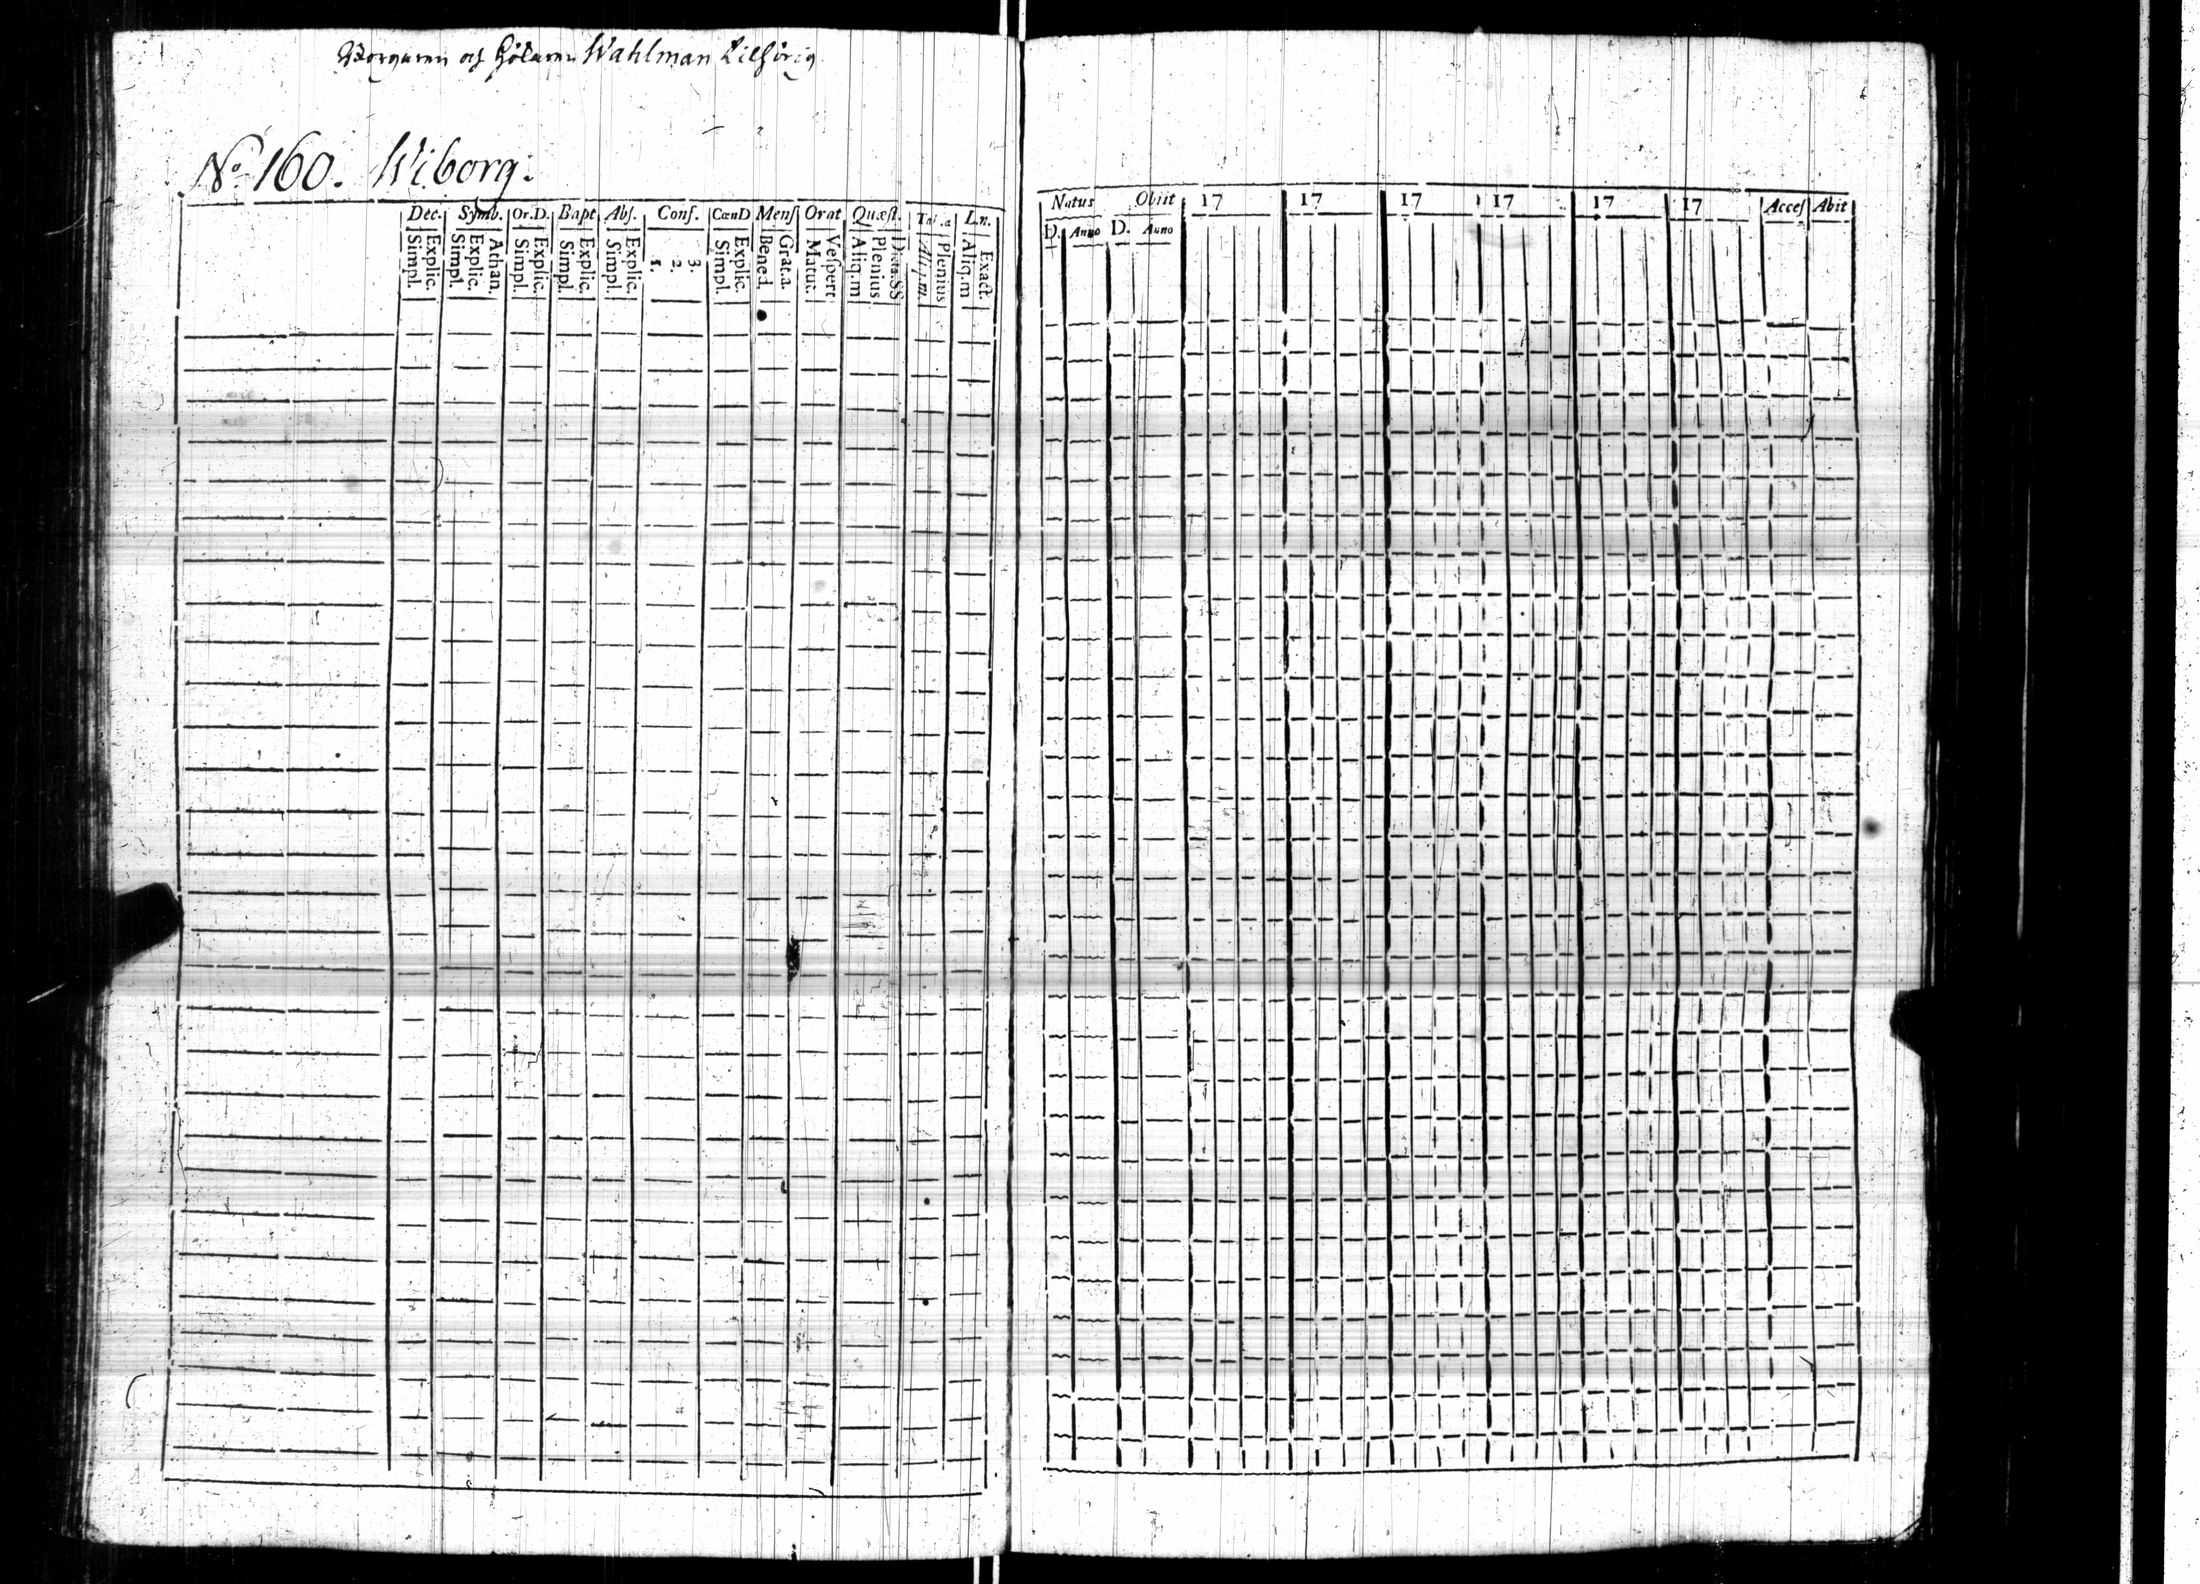 Borgaren och Wahlman tilhörig
No. 160. Wiborg.
Dec. Symb. Or.D. Bapt Abs. Conf. CœnD Mens Orat Quæst. L.n.
Simpl. Explic. Simpl. Explic. Athan. Simpl. Explic. Simpl. Explic. Simpl. Explic. 1. 2. 3. Simpl. Explic. Bened. Grat.a. Matut. Vespert Aliq.m Plenius Dicta.SS Aliq.m. Plenius Aliq.m Exact.
Natus Obiit 17 17 17 17 17 17 Acces Abit
D. Anno D. Anno